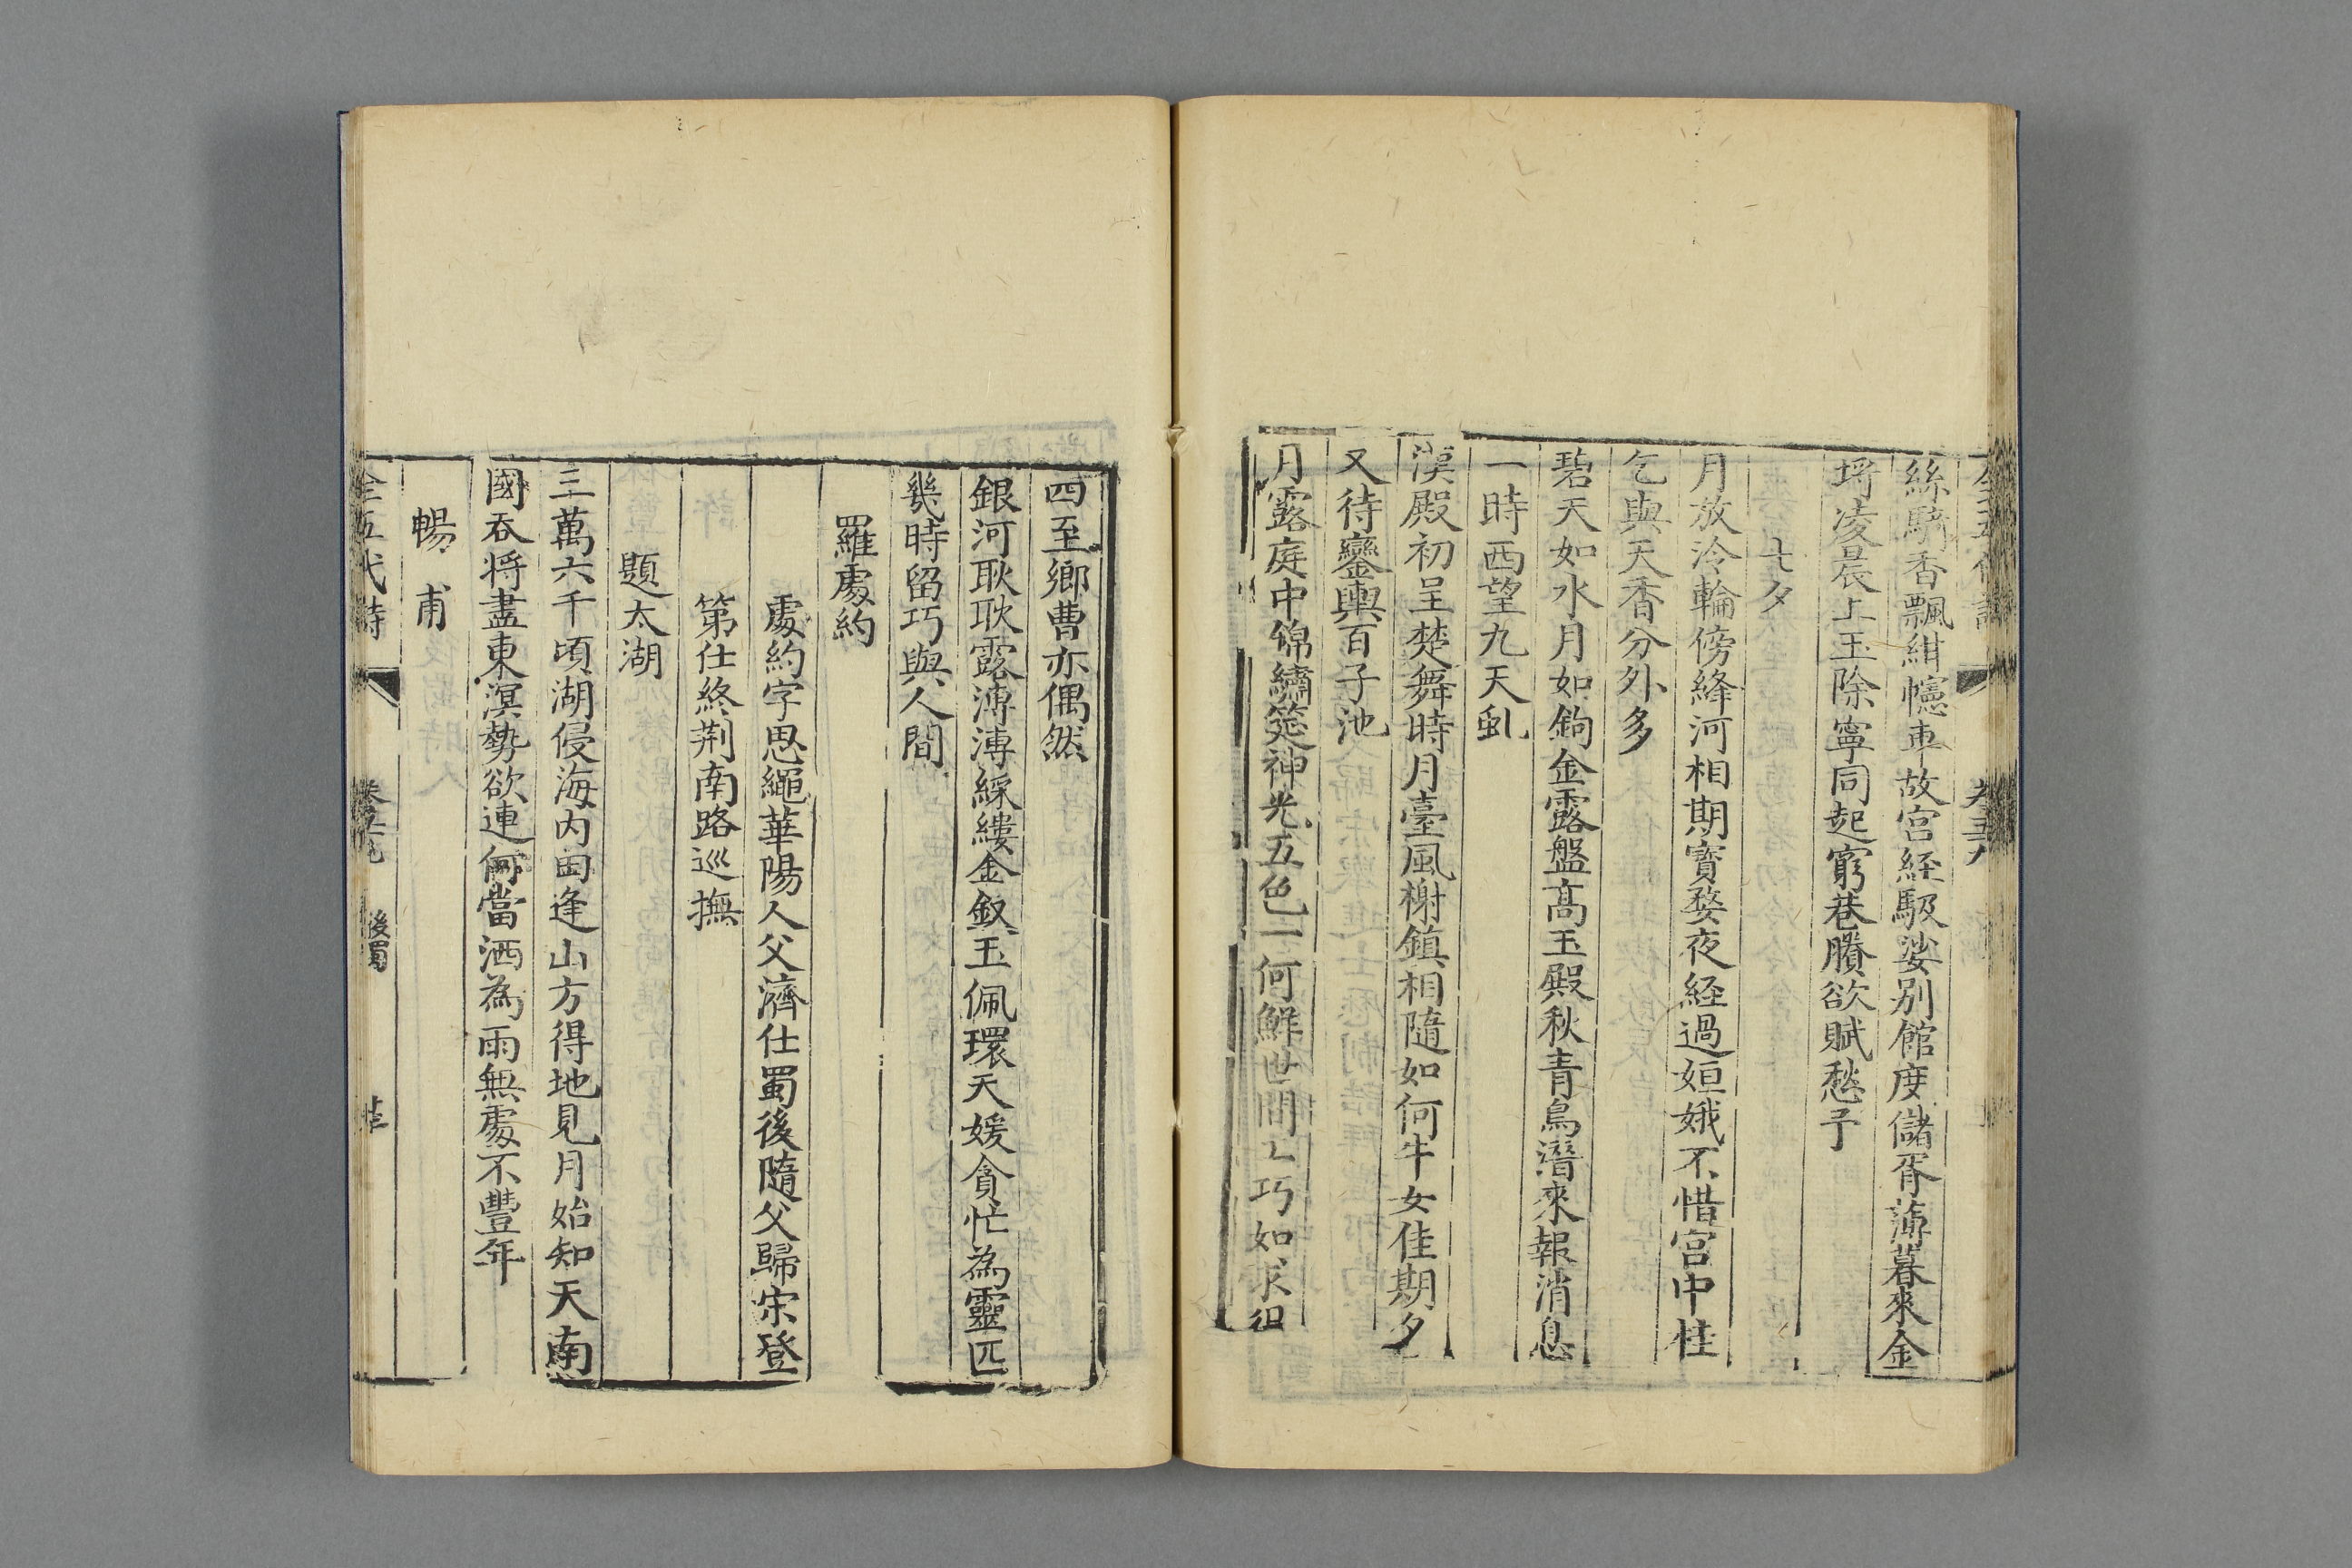 絲騎香飄紺幰車故宮經馺娑别館度儲胥薄暮來金
埒凌晨上玉除寧同起窮巷賸欲賦愁予
七夕
月放冷輪傍絳河相期寳婺夜經過姮娥不惜宮中桂
乞與天香分外多
碧天如水月如鉤金露盤髙玉殿秋青鳥潛來報消息
一時西望九天虯
漢殿初呈楚舞時月臺風榭鎮相隨如何牛女佳期夕
又待鑾輿百子池
月露庭中錦繡筵神光五色一何鮮世間乚巧如求徂
四至鄉曹亦偶然
銀河耿耿露漙漙綵縷金釵玉佩環天媛貪忙為靈匹
幾時留巧與人間
羅處約
處約字思繩華陽人父濟仕蜀後隨父歸宋登
第仕終荆南路巡撫
題太湖
三萬六千頃湖侵海内田逢山方得地見月始知天南
國吞將盡東溟勢欲連何當洒為雨無處不豐年
暢甫
全五代詩
後蜀